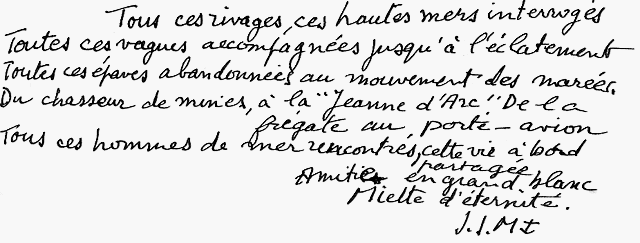 Tous ces rivages, ces hautes mers interrogés
Toutes ces vagues accompagnées jusqu'à l'éclatement
Toutes ces épaves abandonnées au mouvement des marées.
Du chasseur de mines, à la "Jeanne d'Arc" De la
frégate au, porte-avion
Tous ces hommes de mer rencontrés, cette vie à bord
partagée
Amitiés en grand blanc
Miette d'éternité.